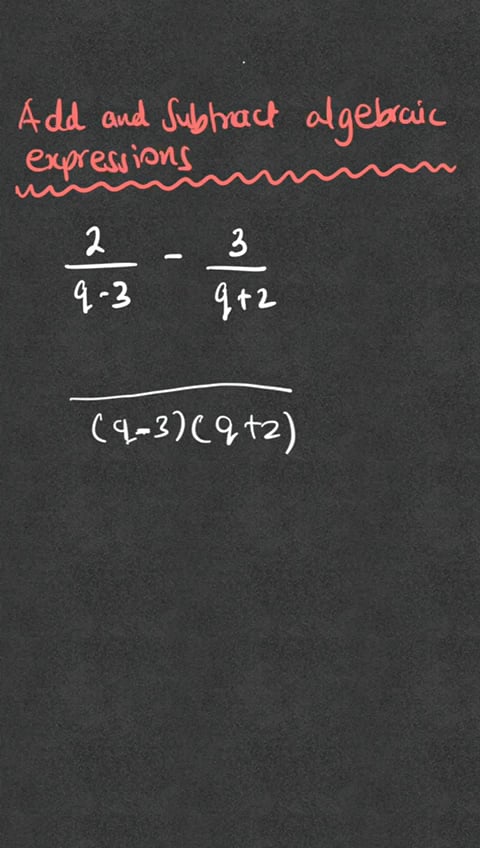 Add and Subtract algebraic
expressions
2/(q-3) - 3/(q+2)
/(q-3)(q+2)